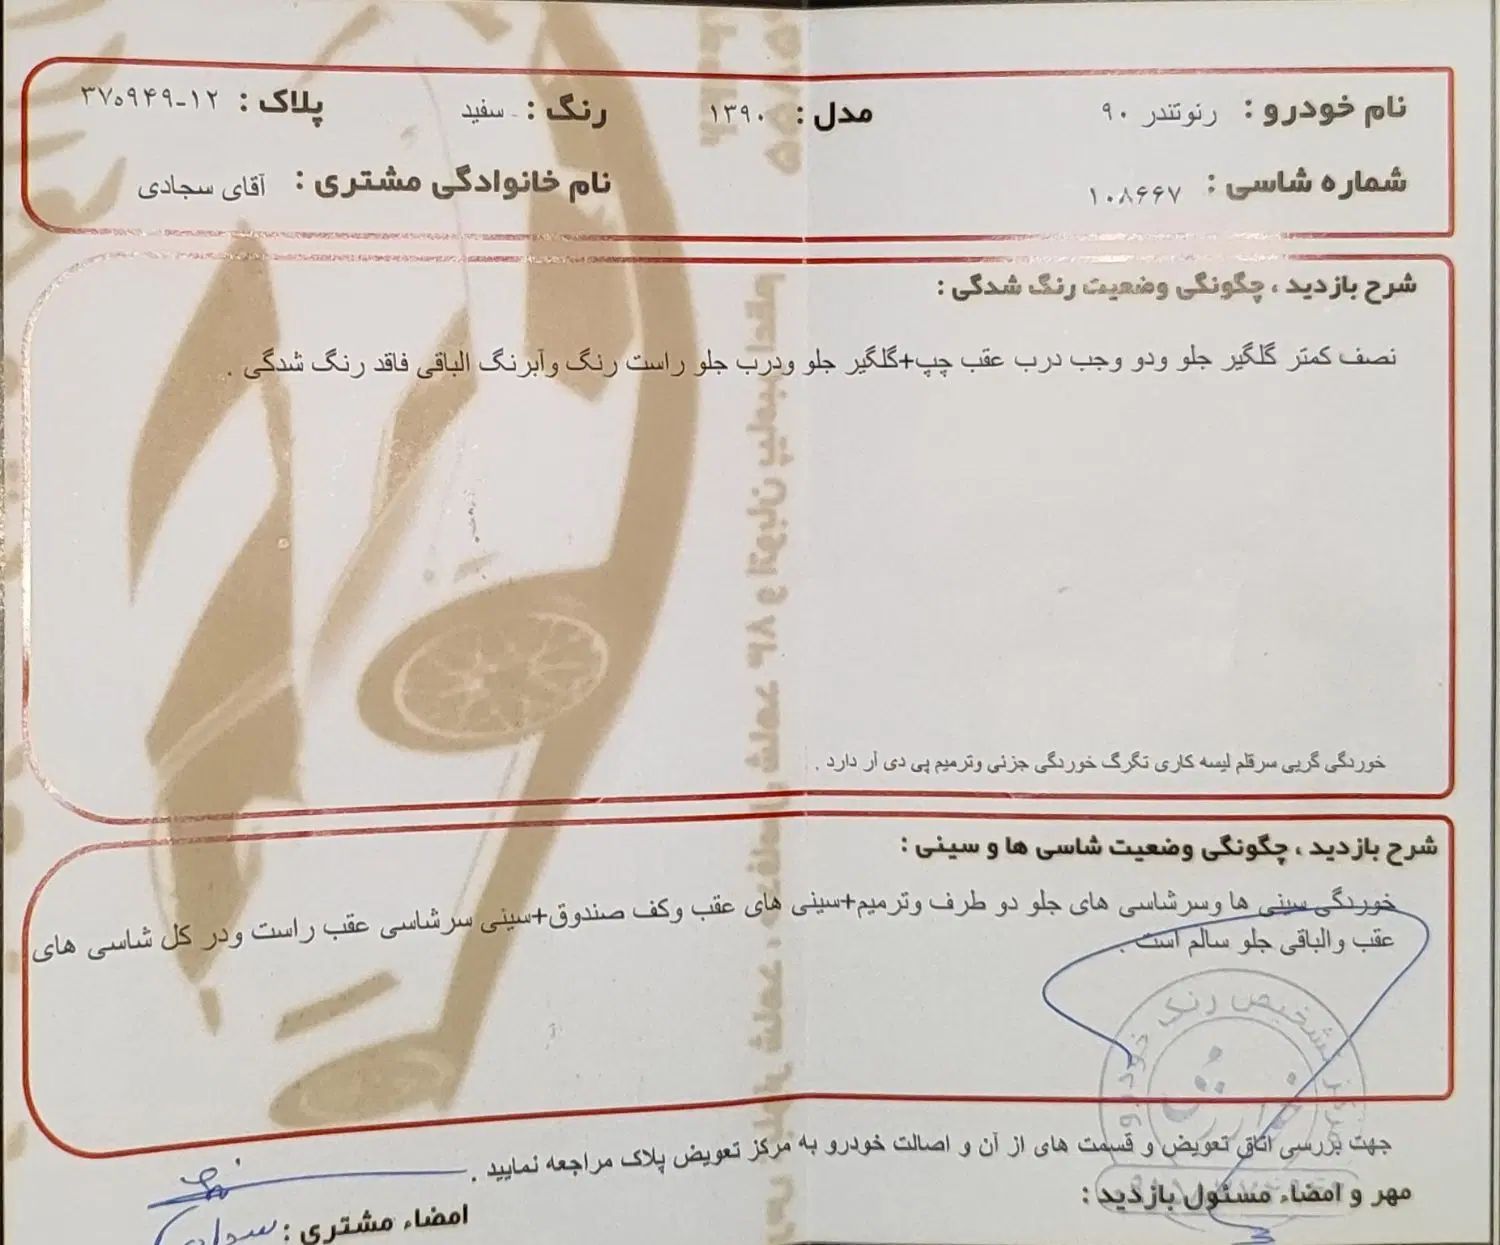 نام خودرو : رنوتندر ۹۰ مدل : ۱۳۹۰ رنگ : سفید پلاک : ۱۲-۳۷۰۹۴۹
شماره شاسی : ۱۰۸۶۶۷ نام خانوادگی مشتری : آقای سجادی
شرح بازدید ، چگونگی وضعیت رنگ شدگی :
نصف کمتر گلگیر جلو ودو وجب درب عقب چپ+گلگیر جلو ودرب جلو راست رنگ وآبرنگ الباقی فاقد رنگ شدگی .
خوردگی گریی سرقلم لیسه کاری تگرگ خوردگی جزئی وترمیم پی دی آر دارد .
شرح بازدید ، چگونگی وضعیت شاسی ها و سینی :
خوردگی سینی ها وسرشاسی های جلو دو طرف وترمیم+سینی های عقب وکف صندوق+سینی سرشاسی عقب راست ودر کل شاسی های
عقب والباقی جلو سالم است .
مرکز تشخیص رنگ خودرو
جهت بررسی اتاق تعویض و قسمت های از آن و اصالت خودرو به مرکز تعویض پلاک مراجعه نمایید .
مهر و امضاء مسئول بازدید :
امضاء مشتری :